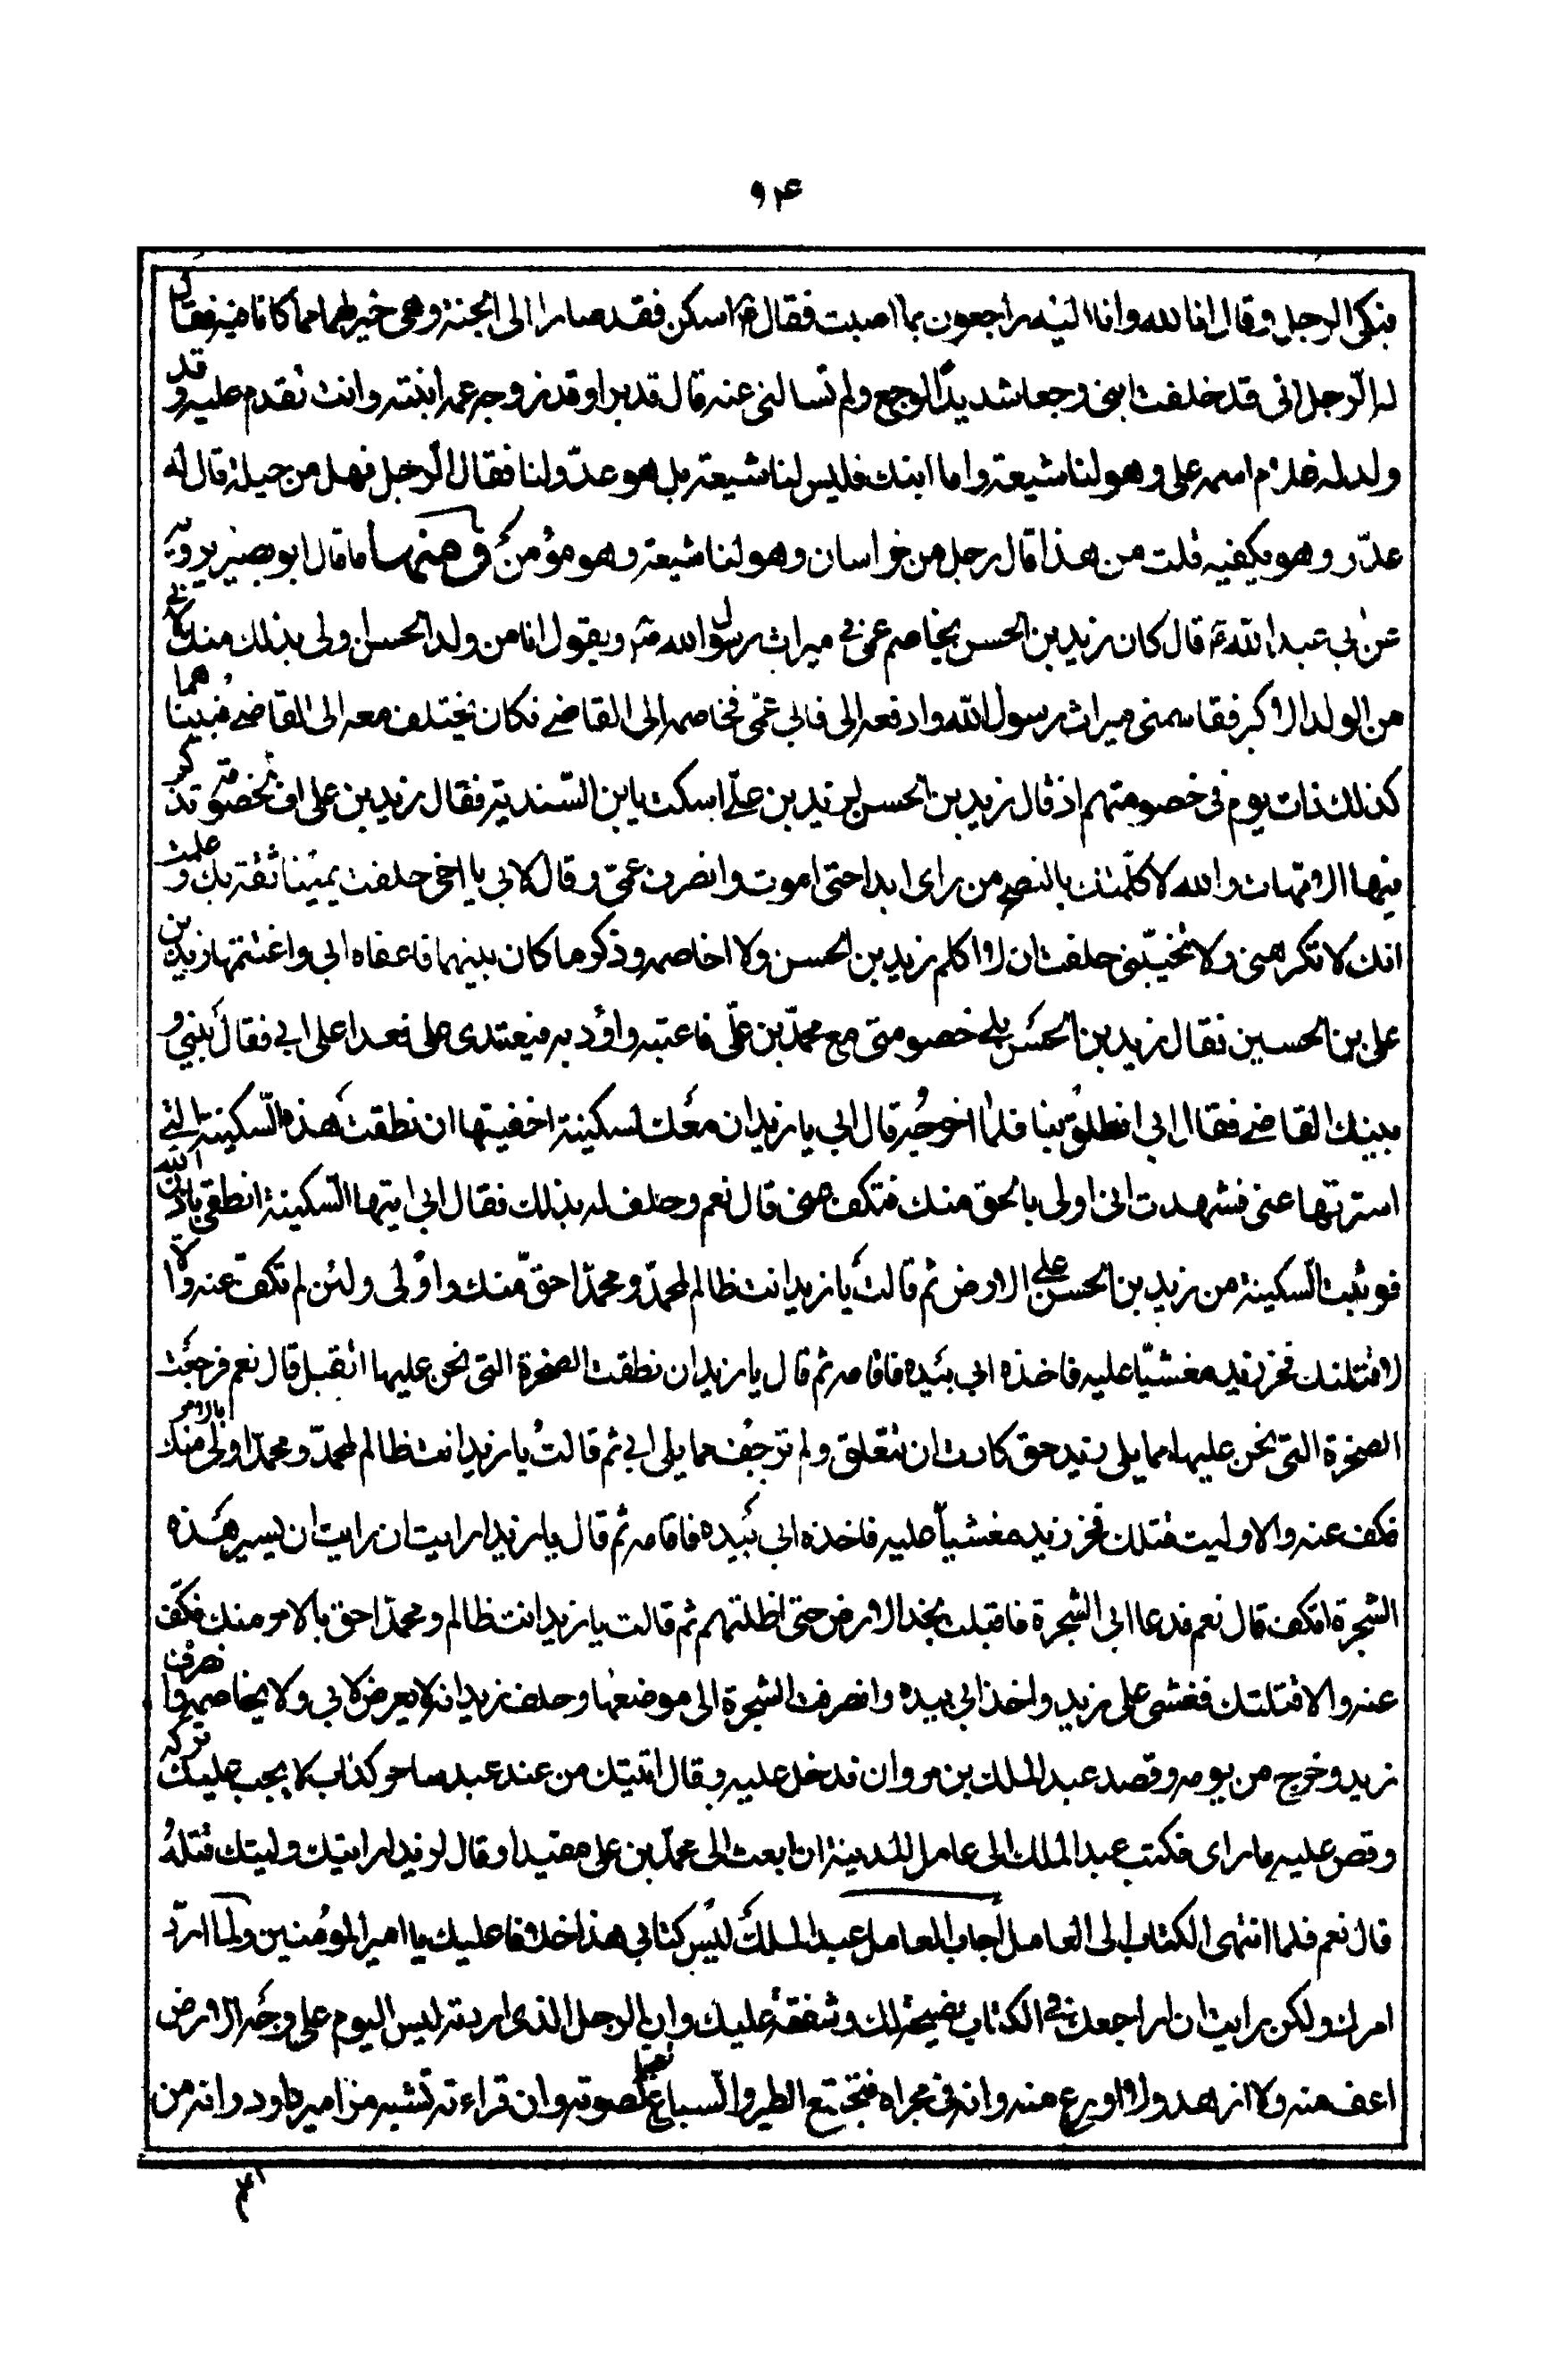 ۹۴
فبكى الرجل وقال انا لله وانا اليه راجعون بما اصبت فقال ع اسكن فقد صارا الى الجنة وهى خير لهما مما كانا فيه فقال
له الرجل انى قد خلفت ابنى وجعا شديد الوجع ولم تسالنى عنه قال قد برا وقد زوجه عمه ابنته وانت تقدم عليه وقد
ولد له غلام اسمه على وهو لنا شيعة واما ابنك فليس لنا شيعة بل هو عدو لنا فقال الرجل فهل من حيلة قال له
عدو وهو يكفيه قلت من هذا قال رجل من خراسان وهو لنا شيعة وهو مؤمن ومنها ما قال ابو بصير يرويه
عن ابى عبد الله ع قال كان زيد بن الحسن يخاصم عمى فى ميراث رسول الله ص ويقول انا من ولد الحسن اولى بذلك منك لانى
من الولد الاكبر فقاسمنى ميراث رسول الله وادفعه الى فابى عمى فخاصمه الى القاضى فكان يختلف معه الى القاضى فبينا هما
كذلك ذات يوم فى خصومتهم اذ قال زيد بن الحسن لزيد بن على اسكت يابن السندية فقال زيد بن على اف لخصومة تذكر
فيها الامهات والله لا كلمتك بالنصح من راى ابدا حتى اموت وانصرف عمى وقال لابى يا اخى حلفت يمينا ثقة بك وعلمت
انك لا تكرهنى ولا تخيبنى حلفت ان لا اكلم زيد بن الحسن ولا اخاصمه وذكر ما كان بينهما فاعفاه ابى واغتنمها زيد بن
على بن الحسين فقال زيد بن الحسن يلى خصومتى مع محمد بن على فاعتبه واؤدبه فيعتدى على فعدا على ابى فقال بينى و
بينك القاضى فقال ابى انطلق بنا فلما اخرجه قال ابى يا زيد ان معك سكينة اخفيتها ان نطقت هذه السكينة التى
استرتها عنى فشهدت انى اولى بالحق منك فتكف عنى قال نعم وحلف له بذلك فقال ابى ايتها السكينة انطقى باذن الله
فوثبت السكينة من زيد بن الحسن على الارض ثم قالت يا زيد انت ظالم لمحمد ومحمد احق منك واولى ولئن لم تكف عنه والا
لاقتلنك فخر زيد مغشيا عليه فاخذه ابى بيده فاقامه ثم قال يا زيد ان نطقت الصخرة التى نحن عليها اتقبل قال نعم فرجفت
الصخرة التى نحن عليها مما يلى زيد حتى كادت ان تتعلق ولم ترجف مما يلى ابى ثم قالت يا زيد انت ظالم لمحمد ومحمد اولى بالامر منك
فكف عنه والا وليت قتلك فخر زيد مغشيا عليه فاخذه ابى بيده فاقامه ثم قال يا زيد ارايت ان رايت ان يسير هذه
الشجرة اتكف قال نعم فدعا ابى الشجرة فاقبلت يخد الارض حتى اظلتهم ثم قالت يا زيد انت ظالم ومحمد احق بالامر منك فكف
عنه والا قتلتك فغشى على زيد واخذ ابى بيده وانصرفت الشجرة الى موضعها وحلف زيد انه لا يعرض لابى ولا يخاصمه وانصرف
زيد وخرج من يومه وقصد عبد الملك بن مروان فدخل عليه وقال اتيتك من عند عبد ساحر كذاب لا يجب عليك تركه
وقص عليه ما راى فكتب عبد الملك الى عامل المدينة ان ابعث الى محمد بن على مقيدا وقال لزيد ارايتك وليتك قتله
قال نعم فلما انتهى الكتاب الى العامل اجاب العامل عبد الملك ليس كتابى هذا خلافا عليك يا امير المؤمنين ولما ارد
امرك ولكن رايت ان اراجعك فى الكتاب نصيحة لك وشفقة عليك وان الرجل الذى اردته ليس اليوم على وجه الارض
اعف منه ولا ازهد ولا اورع منه وانه فى محرابه فتجتمع الطير والسباع تعجبا لصوته وان قراءته تشبه مزامير داود وانه من